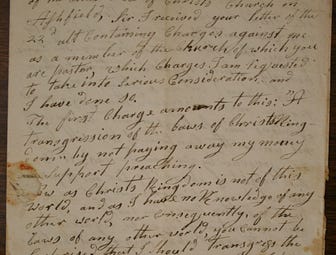 of Christs Church in
Ashfield, Sir I received your letter of the
22d ult Containing Charges against me
as a member of the Church of which you
are pastor, which Charges I am requested
to take into Serious Consideration, and
I have done So.
The first Charge amounts to this: "A
transgression of the Laws of Christs King-
dom by not paying away my money
support preaching.
as Christs Kingdom is not of this
World, and as I have no Knowledge of any
other world, nor Consequently, of the
Laws of any other world, you cannot be
that I Should transgress the